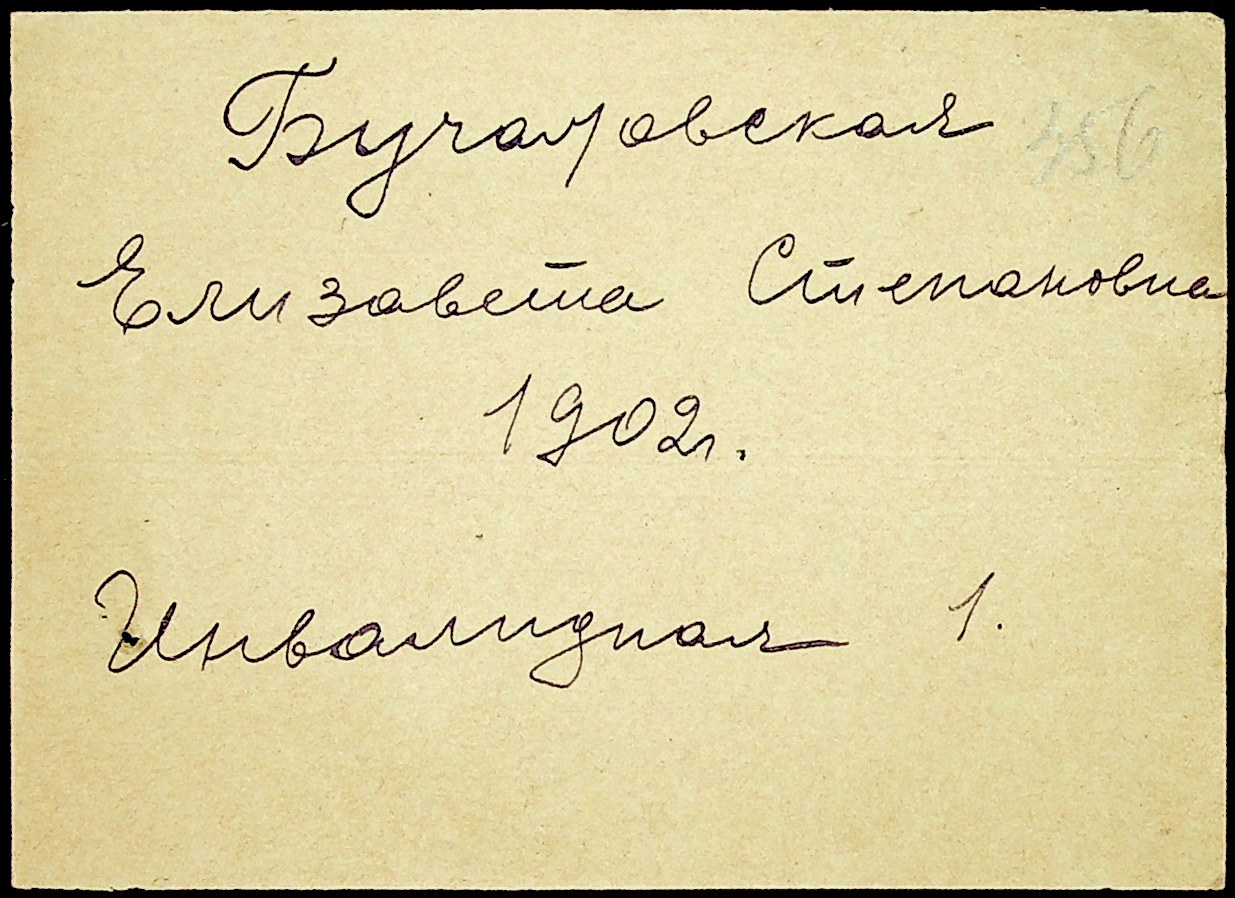 Бучаровская
Елизавета Степановна
1902г.
Инвалидная 1.